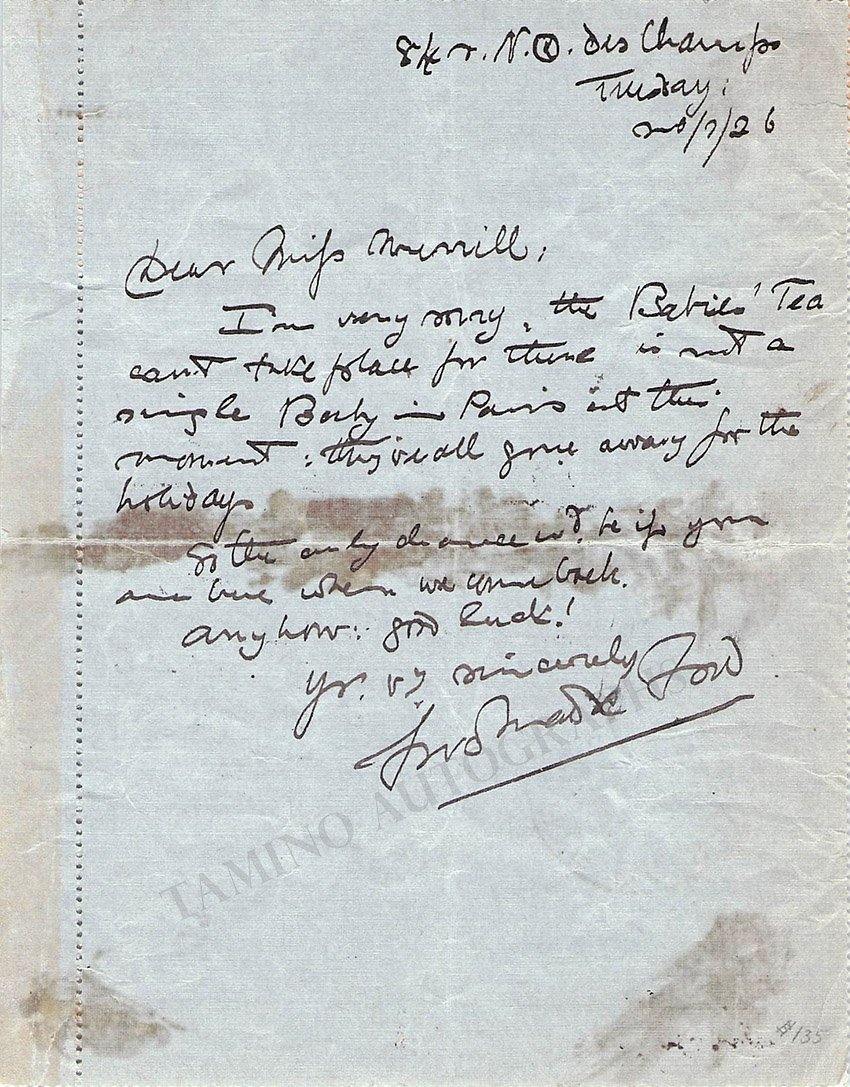 r. N. D. des Champs
Tuesday:
/7/26
Dear Miss Merrill,
I'm very sorry, the Babies' Tea
can't take place for there is not a
single Baby in Paris at this
moment: they've all gone away for the
holidays
So the only chance wd. be if you
are here when we come back.
Anyhow: good luck!
Yr. vy. sincerely
Ford Madox Ford
TAMINO AUTOGRAPHS
#135